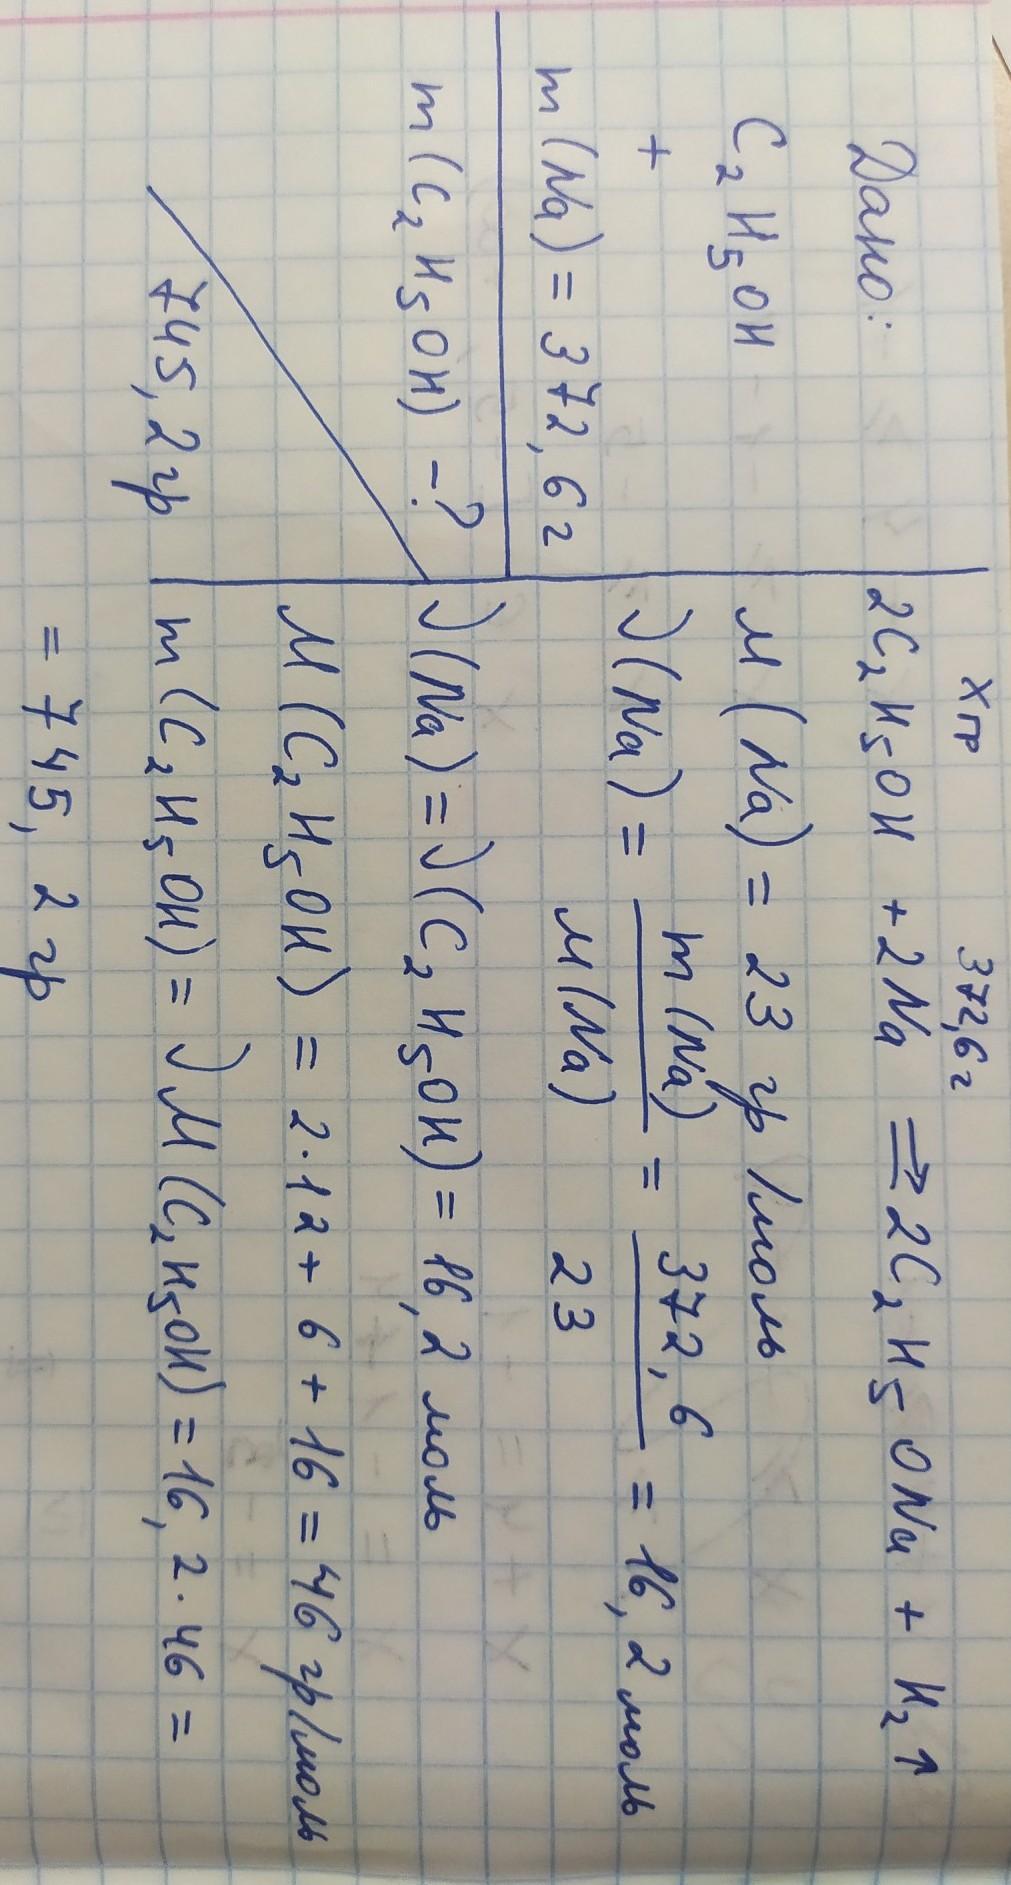 Дано:
C₂H₅OH
+
m(Na) = 372,6 г
m(C₂H₅OH) – ?
745,2 гр
x гр 372,6 г
2C₂H₅OH + 2Na ⇒ 2C₂H₅ONa + H₂↑
M(Na) = 23 гр/моль
ν(Na) = m(Na)/M(Na) = 372,6/23 = 16,2 моль
ν(Na) = ν(C₂H₅OH) = 16,2 моль
M(C₂H₅OH) = 2·12 + 6 + 16 = 46 гр/моль
m(C₂H₅OH) = νM(C₂H₅OH) = 16,2·46 =
= 745,2 гр